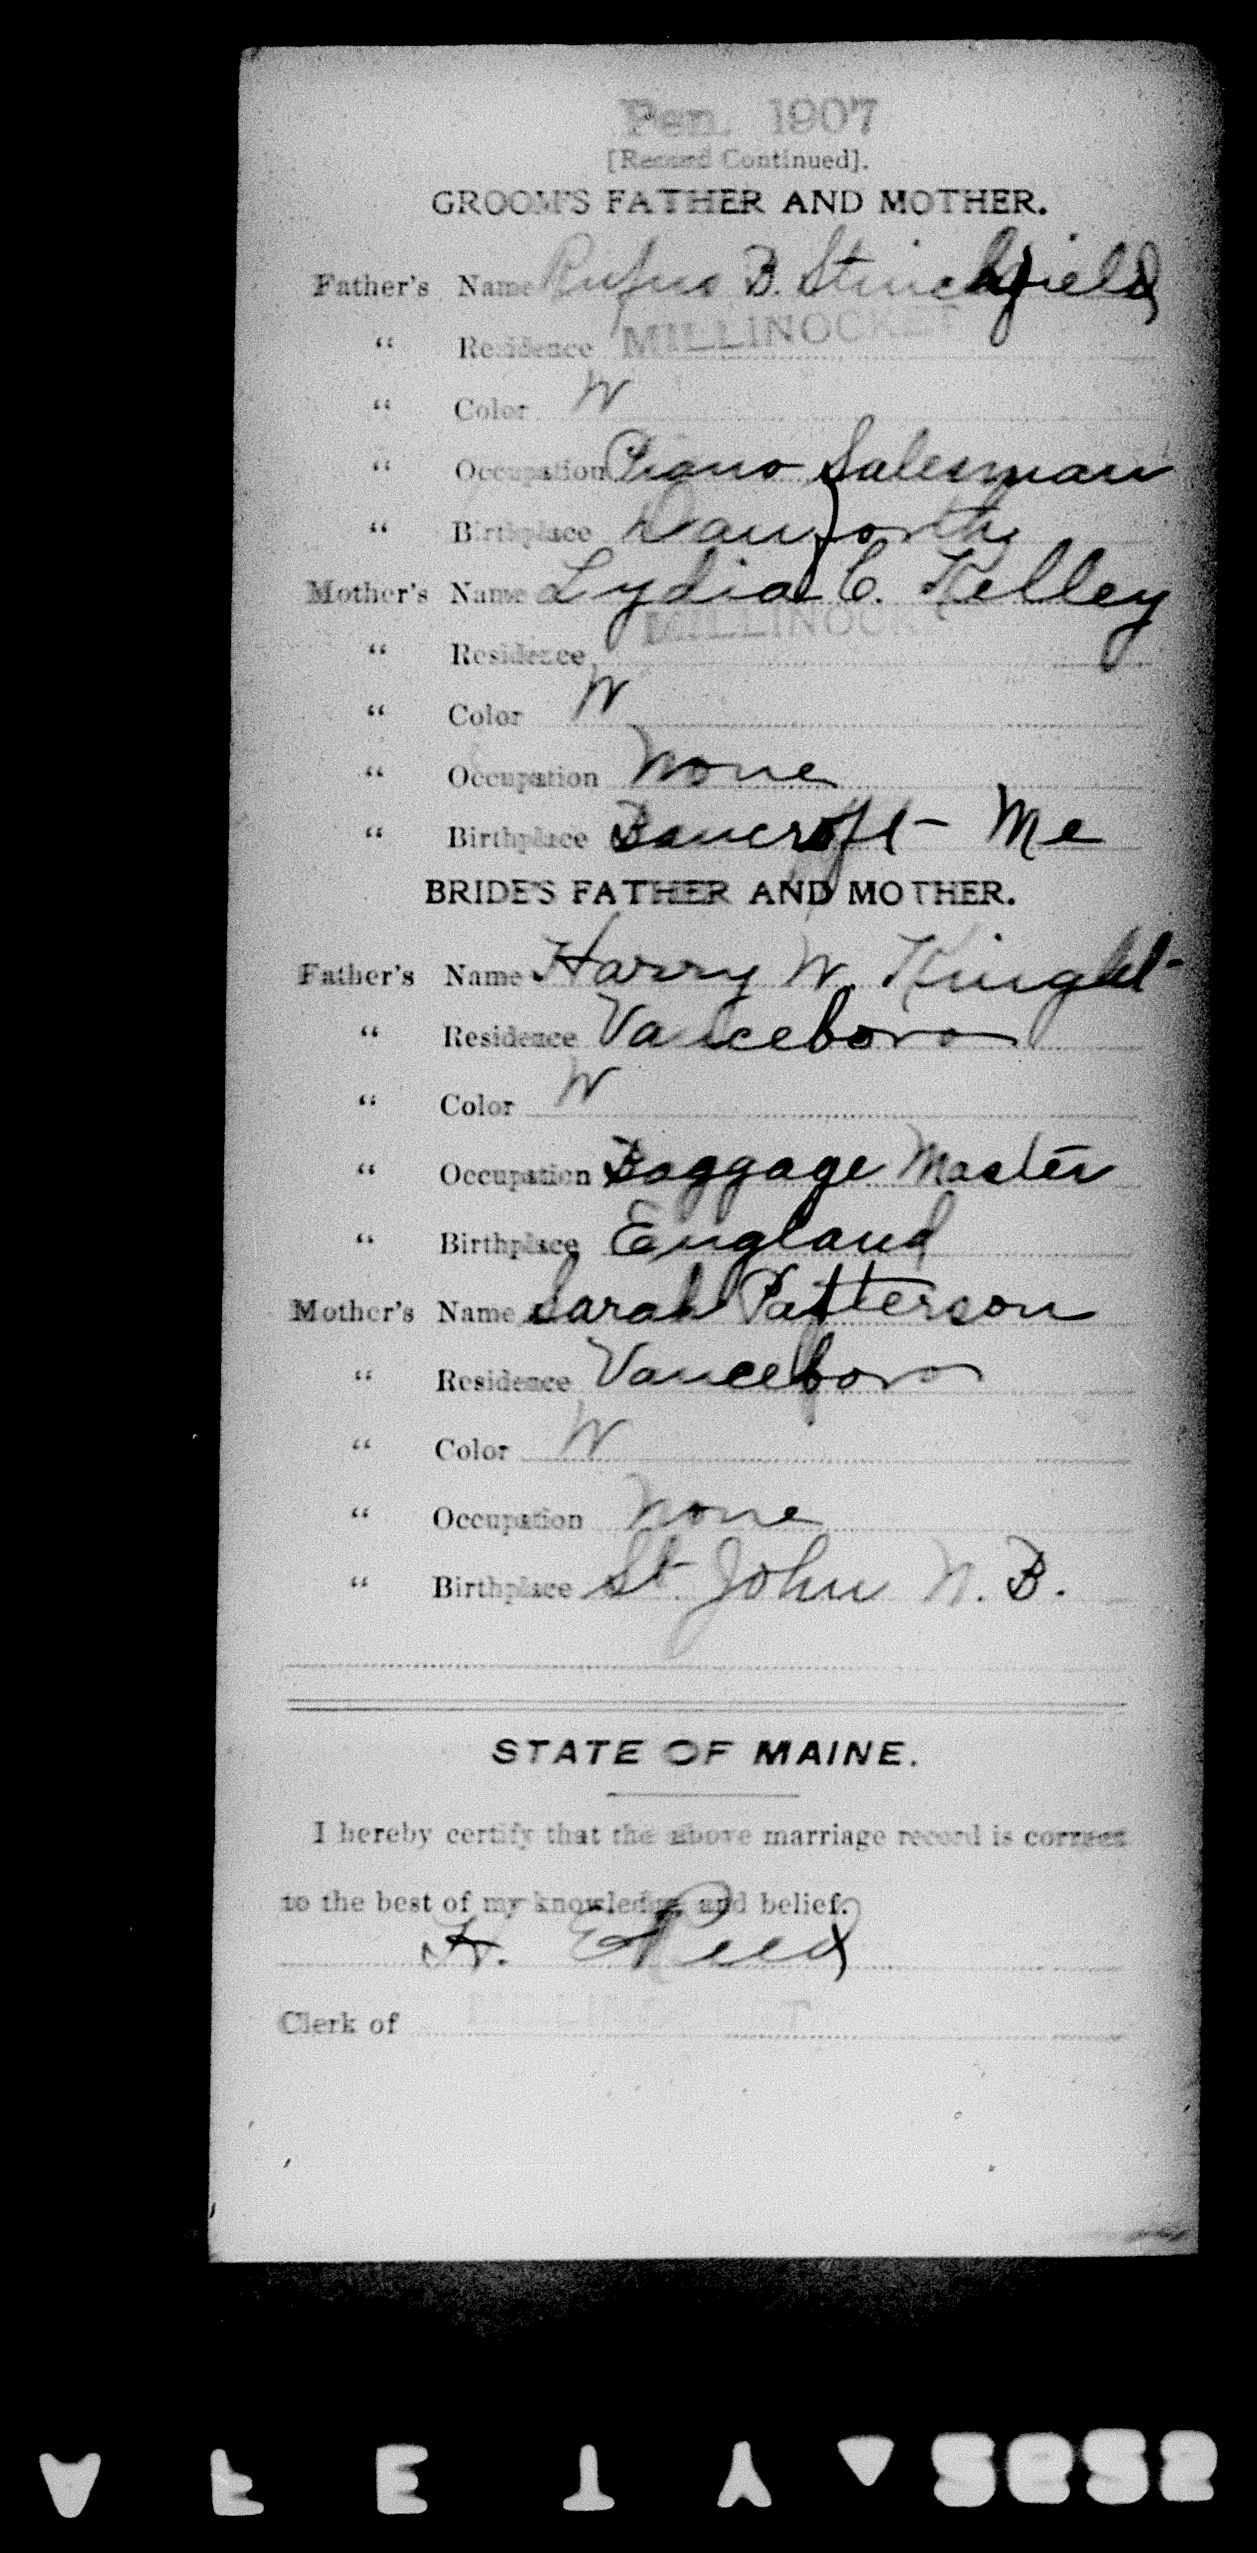 Pen. 1907
[Record Continued].
GROOM'S FATHER AND MOTHER.
Father's Name Rufus B. Stinchfield
" Residence MILLINOCKET
" Color W
" Occupation Piano Salesman
" Birthplace Danforth
Mother's Name Lydia C. Kelley
" Residence MILLINOCK
" Color W
" Occupation None
" Birthplace Bancroft Me
BRIDE'S FATHER AND MOTHER.
Father's Name Harry W. Knight
" Residence Vanceboro
" Color W
" Occupation Baggage Master
" Birthplace England
Mother's Name Sarah Patterson
" Residence Vanceboro
" Color W
" Occupation None
" Birthplace St. John N. B.
STATE OF MAINE.
I hereby certify that the above marriage record is correct
to the best of my knowledge and belief.
H. E. Reed
Clerk of MILLINOCKET